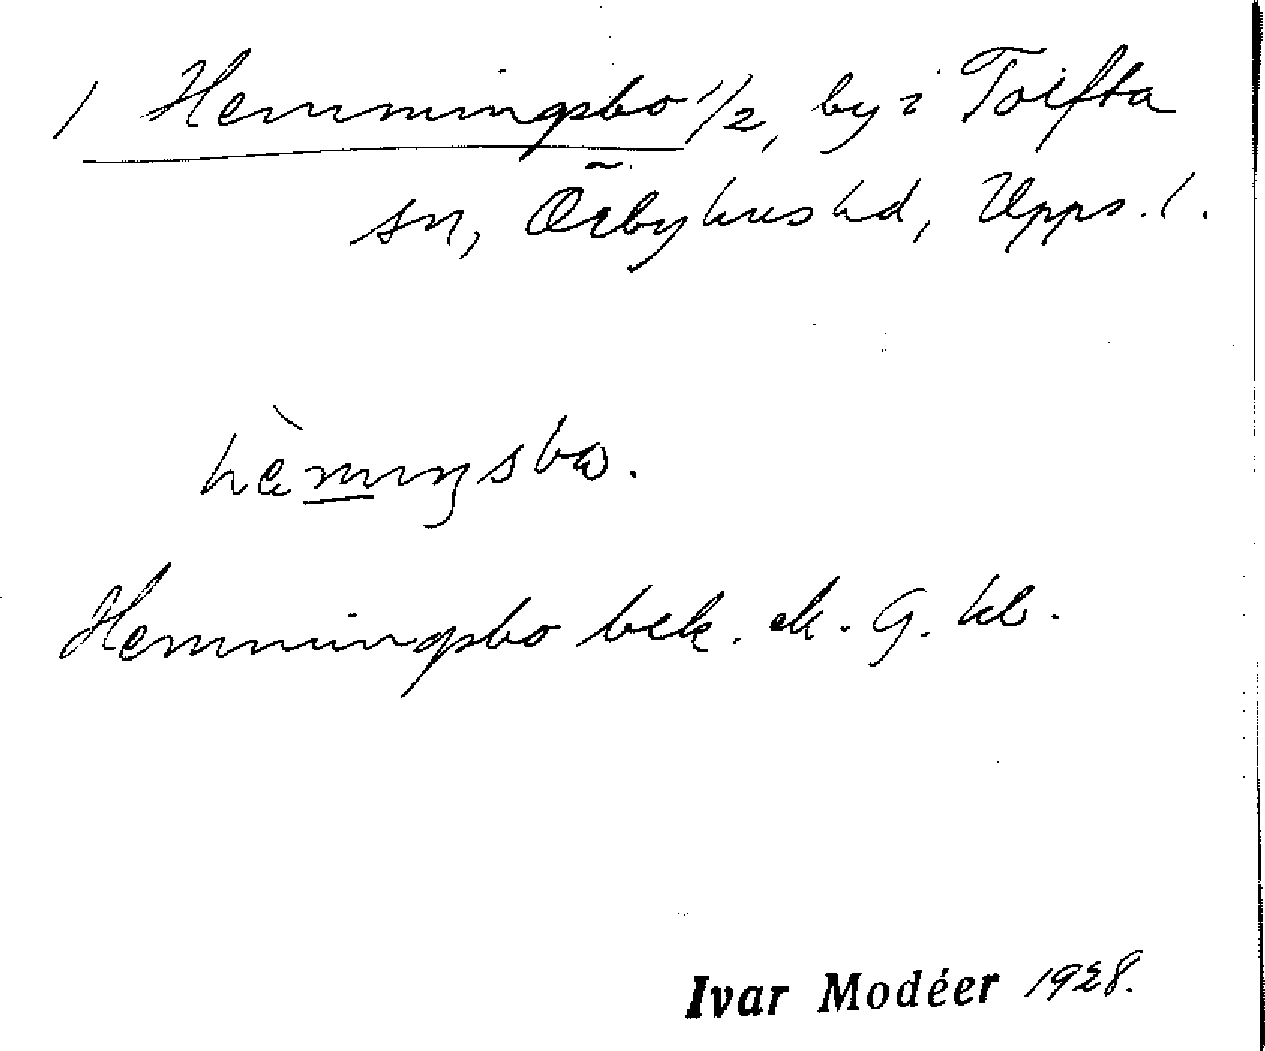 1 Hemmingsbo 1/2, by i Tolfta
sn, Örbyhus hd, Upps. l.
hèmiŋsbω.
Hemmingsbo bek. ek. G. kb.
Ivar Modéer 1928.